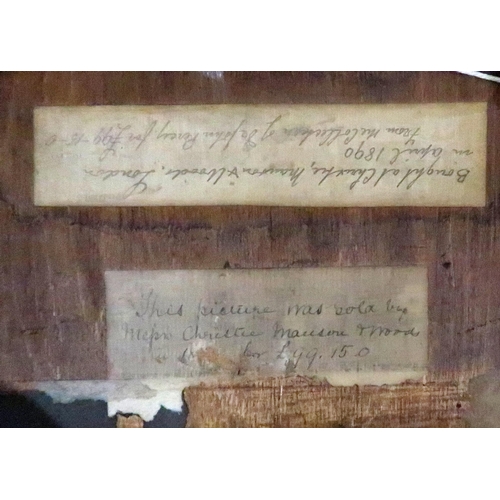 Bought at Christie, Manson & Woods. London
in April 1890
from the Collection of Dr John Percy for £99-15-0
This picture was sold by
Messrs Christie Manson & Woods
for £99. 15 0